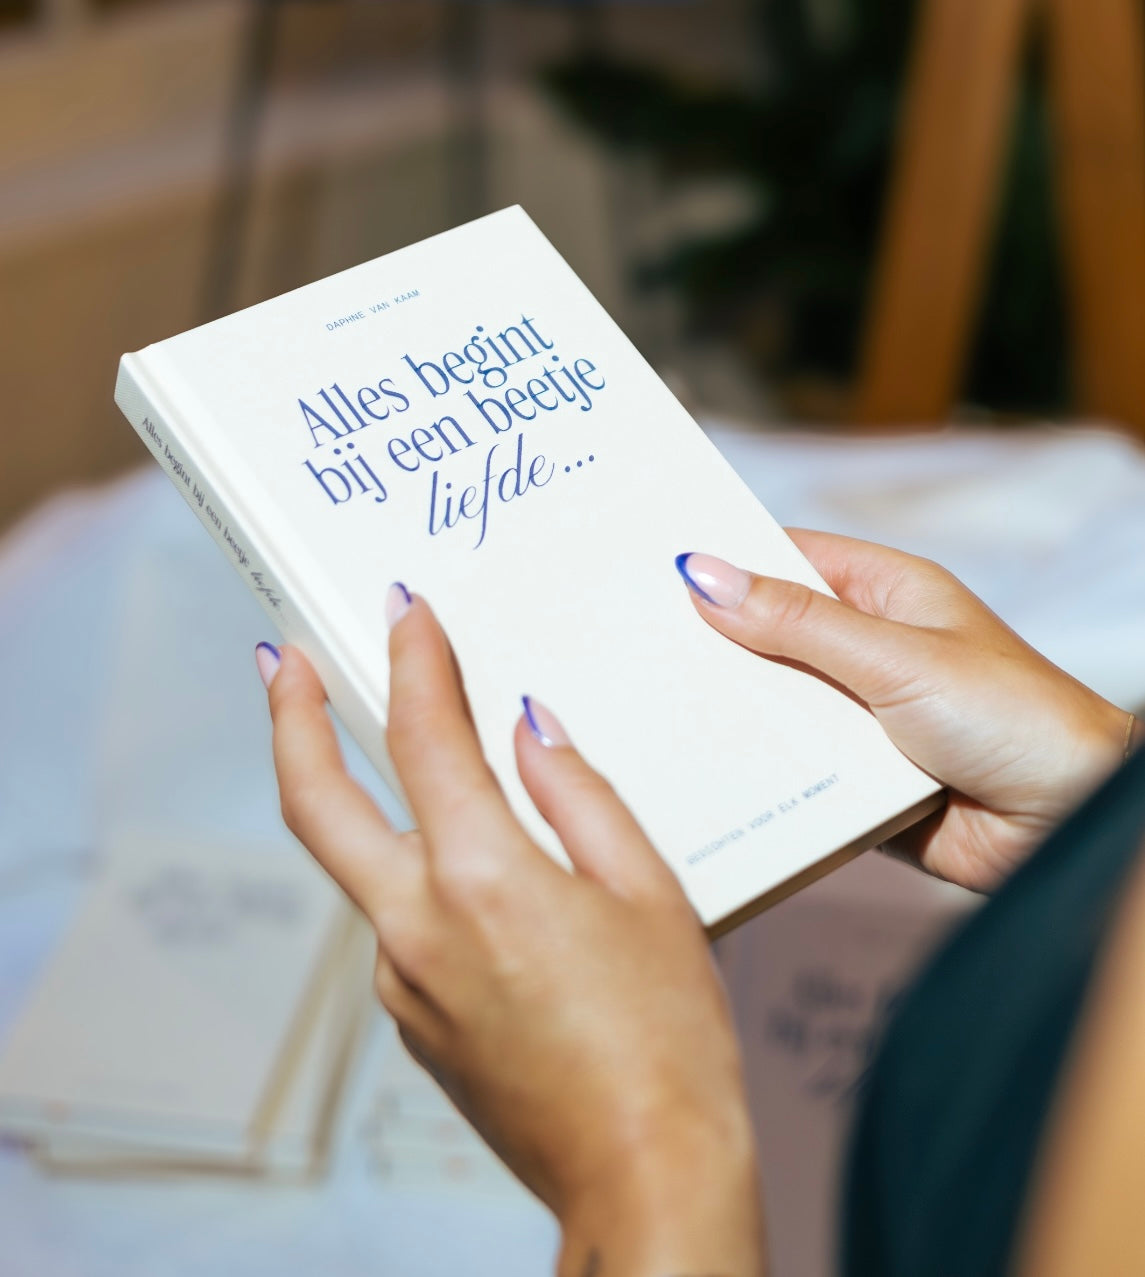 DAPHNE VAN KAAM
Alles begint
bij een beetje
liefde...
GEDICHTEN VOOR ELK MOMENT
Alles begint bij een beetje liefde...